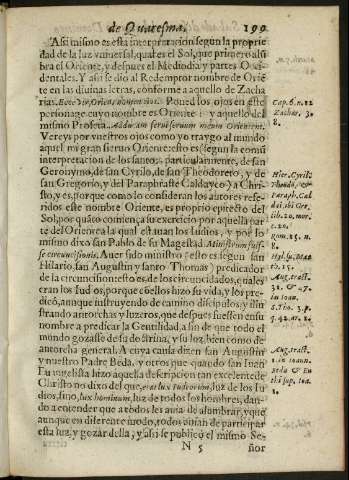 de Quaresma. 199
Assi mismo es esta interpretacion segun la proprie
dad de la luz vniuersal, qual es el Sol, que primero alũ
bra el Oriente, y despues el Mediodia y partes Oc-
dentales. Y assi se dio al Redemptor nombre de Oriẽ
te en las diuinas letras, conforme a aquello de Zacha
rias. Ecce vir, Oriens nomen eius. Poned los ojos en este
personage, cuyo nombre es Oriente: y aquello del
mismo Profeta. Adducam seruũ meum Orientem.
Vereys por vuestros ojos como yo traygo al mundo
aquel mi gran sieruo Oriente: esto es, segun la comũ
interpretacion de los santos, particularmente, de san
Geronymo, de san Cyrilo, de san Theodoreto, y de
san Gregorio, y del Paraphraste Caldayco) a Chri-
sto, y es, porque como lo consideran los autores refe-
ridos este nombre Oriente, es proprio epiteto del
Sol, por quãto comiença su exercicio por aquella par
te del Oriente a la qual estauan los Iudios, y por lo
mismo dixo san Pablo de su Magestad. Ministrum fuis-
se circuncisionis. Auer sido ministro (esto es segun san
Hilario, san Augustin y santo Thomas) predicador
de la circuncision: esto es, de los circuncidados, quales
eran los Iudios, porque a ellos hizo su vida, y les pre-
dicò, aunque instruyendo de camino discipulos, y illu-
strando antorchas y luzeros, que despues fuessen en su
nombre a predicar la Gentilidad, a fin de que todo el
mundo gozasse de su dotrina, y su luz, bien como de
antorcha general. A cuya causa dizen san Augustin
y nuestro Padre Beda, y otros que quando san Iuan
Euangelista hizo aquella descripcion tan excelente de
Christo no dixo del que, erat lux Iudæorum, luz de los Iu-
dios, sino, lux hominum, luz de todos los hombres, dan-
do a entender que a todos les auia de alumbrar, y que
aunque en diferente modo, todos auian de participar
esta luz, y gozar della, y assi se publicò el mismo Se-
N 5 ñor
Cap. 6. n. 12
Zachar. 3.
8.
Hier. Cyril.
Theod. &
Paraph. Cal
Rom. 15. n.
8.
Aug. tract.
S. Tho. 3. p.
q. 42. ar. 1.
Aug. tract.